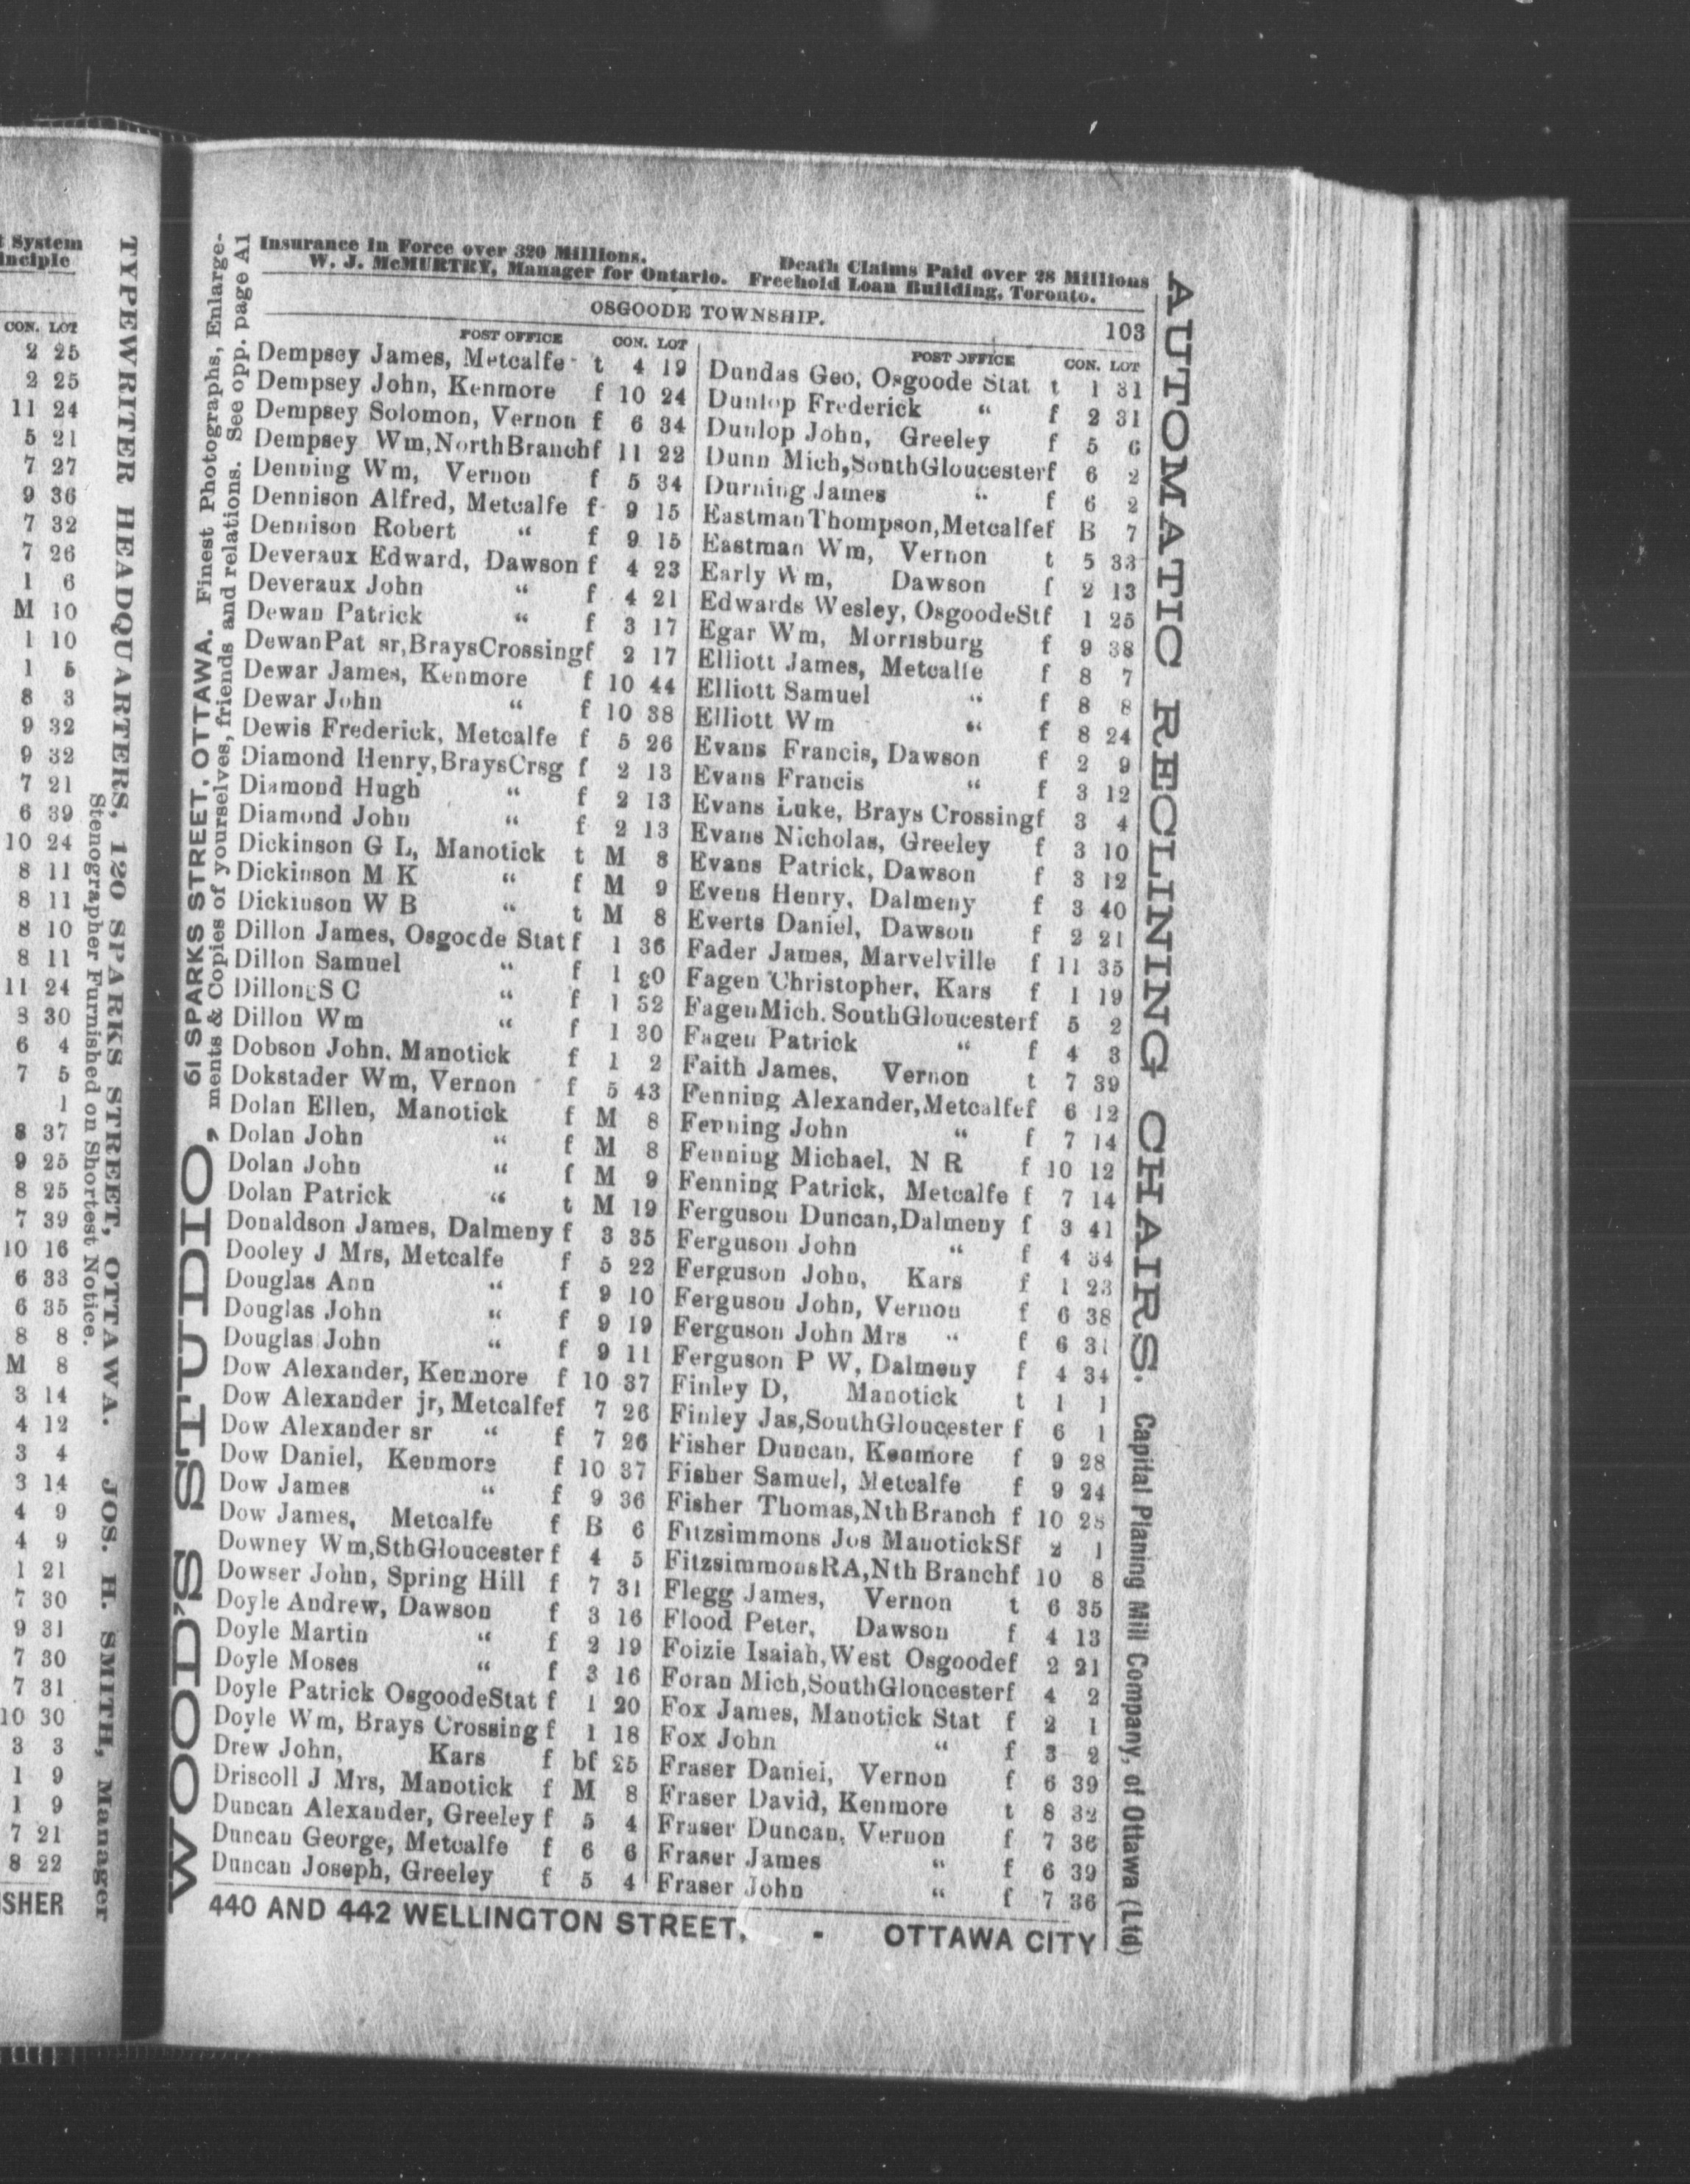 t System
inciple
CON. LOT
2 25
2 25
11 24
5 21
7 27
9 36
7 32
7 26
1 6
M 10
1 10
1 5
8 3
9 32
9 32
7 21
6 39
10 24
8 11
8 11
8 10
8 11
11 24
3 30
6 4
7 5
1
8 37
9 25
8 25
7 39
10 16
6 33
6 35
8 8
M 8
3 14
4 12
3 4
3 14
4 9
4 9
1 21
7 30
9 31
7 30
7 31
10 30
3 3
1 9
1 9
7 21
8 22
ISHER
TYPEWRITER HEADQUARTERS, 120 SPARKS STREET, OTTAWA. JOS. H. SMITH, Manager
Stenographer Furnished on Shortest Notice.
WOOD'S STUDIO, 61 SPARKS STREET, OTTAWA. Finest Photographs, Enlarge-
ments & Copies of yourselves, friends and relations. See opp. page A1
Insurance in Force over 320 Millions. Death Claims Paid over 28 Millions
W. J. McMURTRY, Manager for Ontario. Freehold Loan Building, Toronto.
OSGOODE TOWNSHIP. 103
POST OFFICE CON. LOT
Dempsey James, Metcalfe t 4 19
Dempsey John, Kenmore f 10 24
Dempsey Solomon, Vernon f 6 34
Dempsey Wm,NorthBranchf 11 22
Denning Wm, Vernon f 5 34
Dennison Alfred, Metcalfe f 9 15
Dennison Robert " f 9 15
Deveraux Edward, Dawson f 4 23
Deveraux John " f 4 21
Dewan Patrick " f 3 17
DewanPat sr,BraysCrossingf 2 17
Dewar James, Kenmore f 10 44
Dewar John " f 10 38
Dewis Frederick, Metcalfe f 5 26
Diamond Henry,BraysCrsg f 2 13
Diamond Hugh " f 2 13
Diamond John " f 2 13
Dickinson G L, Manotick t M 8
Dickinson M K " f M 9
Dickinson W B " t M 8
Dillon James, Osgoode Stat f 1 36
Dillon Samuel " f 1 30
Dillon S C " f 1 32
Dillon Wm " f 1 30
Dobson John. Manotick f 1 2
Dokstader Wm, Vernon f 5 43
Dolan Ellen, Manotick f M 8
Dolan John " f M 8
Dolan John " f M 9
Dolan Patrick " t M 19
Donaldson James, Dalmeny f 3 35
Dooley J Mrs, Metcalfe f 5 22
Douglas Ann " f 9 10
Douglas John " f 9 19
Douglas John " f 9 11
Dow Alexander, Kenmore f 10 37
Dow Alexander jr, Metcalfef 7 26
Dow Alexander sr " f 7 26
Dow Daniel, Kenmore f 10 37
Dow James " f 9 36
Dow James, Metcalfe f B 6
Downey Wm,SthGloucester f 4 5
Dowser John, Spring Hill f 7 31
Doyle Andrew, Dawson f 3 16
Doyle Martin " f 2 19
Doyle Moses " f 3 16
Doyle Patrick OsgoodeStat f 1 20
Doyle Wm, Brays Crossing f 1 18
Drew John, Kars f bf 25
Driscoll J Mrs, Manotick f M 8
Duncan Alexander, Greeley f 5 4
Duncan George, Metcalfe f 6 6
Duncan Joseph, Greeley f 5 4
POST OFFICE CON. LOT
Dundas Geo, Osgoode Stat t 1 31
Dunlop Frederick " f 2 31
Dunlop John, Greeley f 5 6
Dunn Mich,SouthGloucesterf 6 2
Durning James " f 6 2
EastmanThompson,Metcalfef B 7
Eastman Wm, Vernon t 5 33
Early Wm, Dawson f 2 13
Edwards Wesley, OsgoodeStf 1 25
Egar Wm, Morrisburg f 9 38
Elliott James, Metcalfe f 8 7
Elliott Samuel " f 8 8
Elliott Wm " f 8 24
Evans Francis, Dawson f 2 9
Evans Francis " f 3 12
Evans Luke, Brays Crossingf 3 4
Evans Nicholas, Greeley f 3 10
Evans Patrick, Dawson f 3 12
Evens Henry, Dalmeny f 3 40
Everts Daniel, Dawson f 2 21
Fader James, Marvelville f 11 35
Fagen Christopher, Kars f 1 19
FagenMich. SouthGloucesterf 5 2
Fagen Patrick " f 4 3
Faith James, Vernon t 7 39
Fenning Alexander,Metcalfef 6 12
Fenning John " f 7 14
Fenning Michael, N R f 10 12
Fenning Patrick, Metcalfe f 7 14
Ferguson Duncan,Dalmeny f 3 41
Ferguson John " f 4 34
Ferguson John, Kars f 1 23
Ferguson John, Vernon f 6 38
Ferguson John Mrs " f 6 31
Ferguson P W, Dalmeny f 4 34
Finley D, Manotick t 1 1
Finley Jas,SouthGloucester f 6 1
Fisher Duncan, Kenmore f 9 28
Fisher Samuel, Metcalfe f 9 24
Fisher Thomas,NthBranch f 10 28
Fitzsimmons Jos ManotickSf 2 1
FitzsimmonsRA,Nth Branchf 10 8
Flegg James, Vernon t 6 35
Flood Peter, Dawson f 4 13
Foizie Isaiah,West Osgoodef 2 21
Foran Mich,SouthGloucesterf 4 2
Fox James, Manotick Stat f 2 1
Fox John " f 3 2
Fraser Daniel, Vernon f 6 39
Fraser David, Kenmore t 8 32
Fraser Duncan, Vernon f 7 36
Fraser James " f 6 39
Fraser John " f 7 36
440 AND 442 WELLINGTON STREET, - OTTAWA CITY
AUTOMATIC RECLINING CHAIRS. Capital Planing Mill Company, of Ottawa (Ltd)